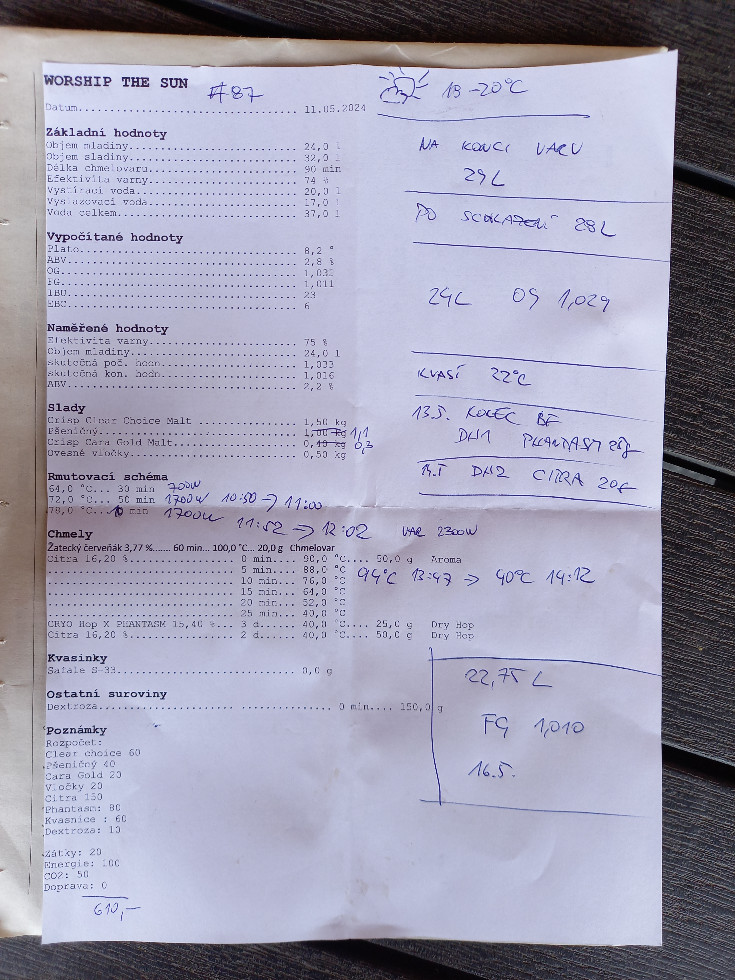 WORSHIP THE SUN #87
19-20°C
Datum.................................. 11.05.2024
Základní hodnoty
Objem mladiny.......................... 24,0 l
Objem sladiny.......................... 32,0 l
Délka chmelovaru....................... 90 min
Efektivita varny....................... 74 %
Vystírací voda......................... 20,0 l
Vyslazovací voda....................... 17,0 l
Voda celkem............................ 37,0 l
NA KONCI VARU
29L
PO SCHLAZENÍ 28L
Vypočítané hodnoty
Plato.................................. 8,2 °
ABV.................................... 2,8 %
OG..................................... 1,032
FG..................................... 1,011
IBU.................................... 23
EBC.................................... 6
24L OG 1,029
Naměřené hodnoty
Efektivita varny....................... 75 %
Objem mladiny.......................... 24,0 l
skutečná poč. hodn..................... 1,033
skutečná kon. hodn..................... 1,016
ABV.................................... 2,2 %
KVASÍ 22°C
Slady
Crisp Clear Choice Malt ............... 1,50 kg
Pšeničný............................... 1,00 kg 1,1
Crisp Cara Gold Malt................... 0,40 kg 0,3
Ovesné vločky.......................... 0,50 kg
13.5. KONEC BF
DH1 PHANTASM 28g
14.5 DH2 CITRA 20g
Rmutovací schéma
64,0 °C... 30 min 700W
72,0 °C... 50 min 1700W 10:50 → 11:00
78,0 °C... 10 min 1700W 11:52 → 12:02 VAR 2300W
Chmely
Žatecký červeňák 3,77 %....... 60 min... 100,0 °C... 20,0 g Chmelovar
Citra 16,20 %.................. 0 min.... 90,0 °C.... 50,0 g Aroma
............................... 5 min.... 88,0 °C
............................... 10 min... 76,0 °C
............................... 15 min... 64,0 °C
............................... 20 min... 52,0 °C
............................... 25 min... 40,0 °C
94°C 13:47 → 40°C 14:12
CRYO Hop X PHANTASM 15,40 %... 3 d...... 40,0 °C.... 25,0 g Dry Hop
Citra 16,20 %.................. 2 d...... 40,0 °C.... 50,0 g Dry Hop
Kvasinky
Safale S-33............................ 0,0 g
Ostatní suroviny
Dextroza...................... ............... 0 min.... 150,0 g
22,75 L
FG 1,010
16.5.
Poznámky
Rozpočet:
Clear choice 60
Pšeničný 40
Cara Gold 20
Vločky 20
Citra 150
Phantasm: 80
Kvasnice : 60
Dextroza: 10
Zátky: 20
Energie: 100
CO2: 50
Doprava: 0
610,-